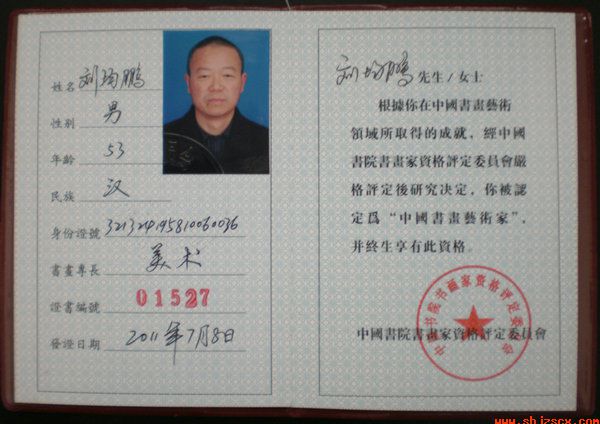 姓名 刘均鹏
性别 男
年齡 53
民族 汉
身份證號 321324195810060036
書畫專長 美术
證書編號 01527
發證日期 2011年7月8日
刘均鹏 先生/女士
根據你在中國書畫藝術
領域所取得的成就，經中國
書院書畫家資格評定委員會嚴
格評定後研究决定，你被認
定爲“中國書畫藝術家”，
并終生享有此資格。
中国书院书画家资格评定委员会
中國書院書畫家資格評定委員會
www.shjzscx.com